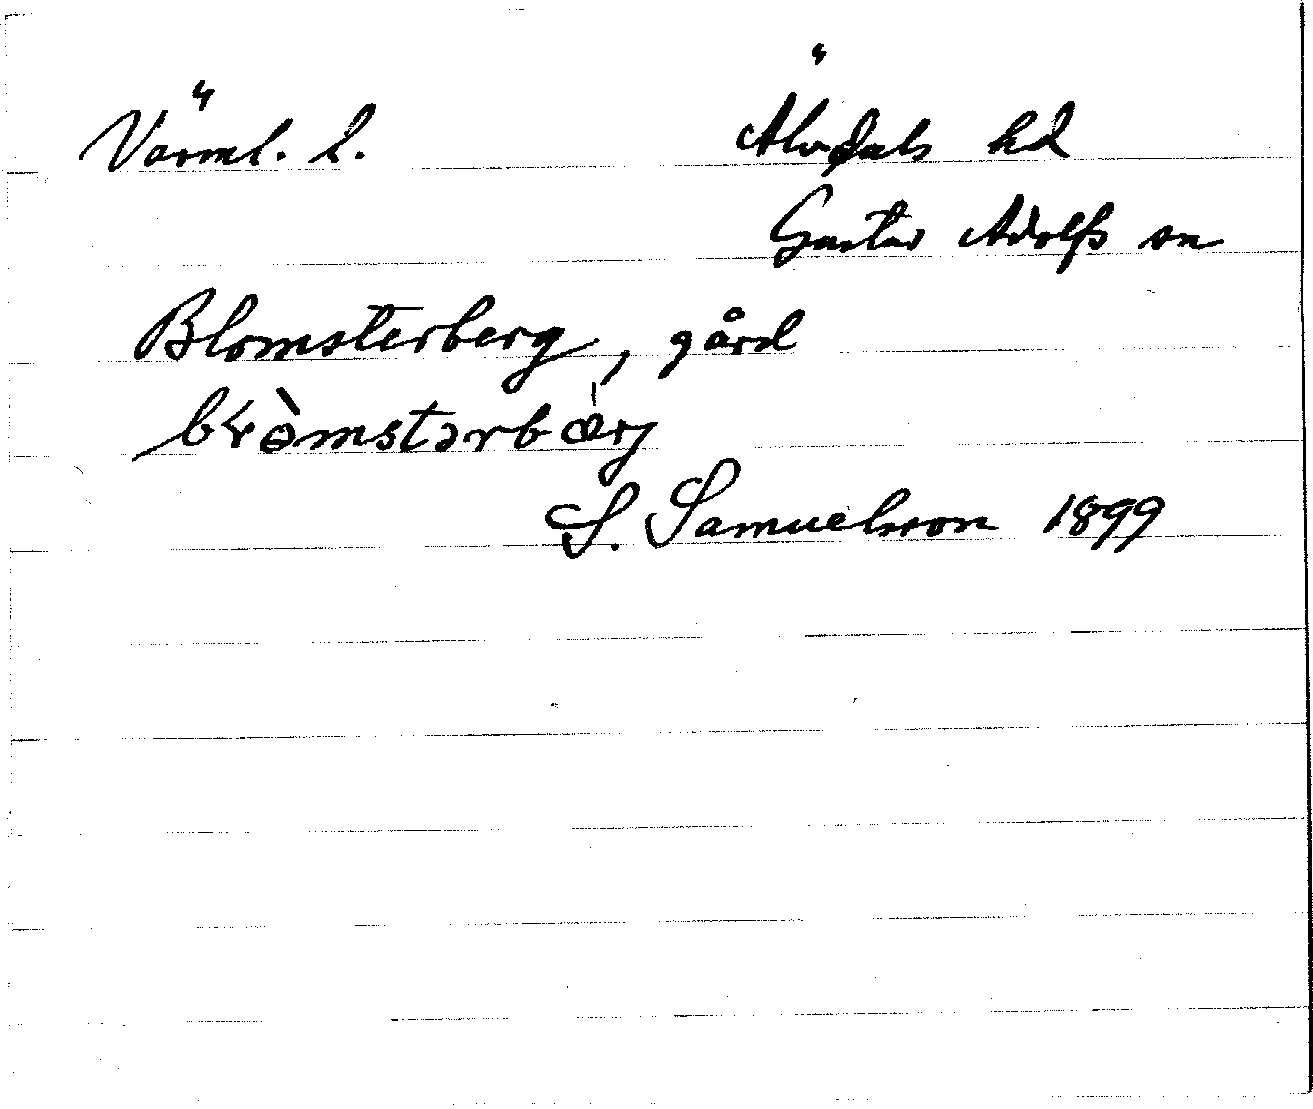 Värml. l. Älvdals hd
Gustav Adolfs sn
Blomsterberg, gård
S. Samuelsson 1899